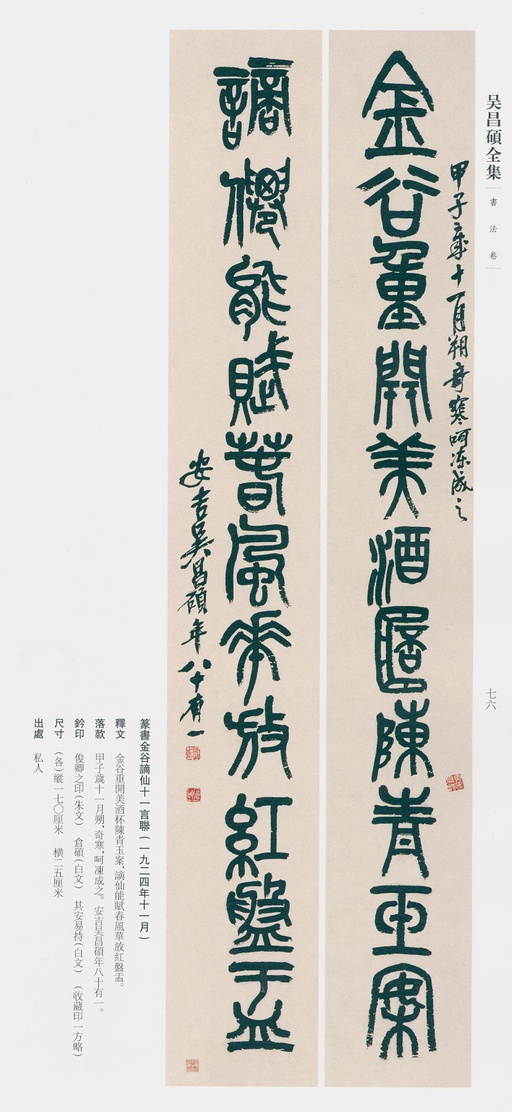 吴昌碩全集
書法卷
七六
甲子歲十一月朔奇寒呵凍成之
金谷重開美酒杯陳青玉案
謫僊能賦春風華放紅盤盂
安吉吴昌碩年八十有一
篆書金谷謫仙十一言聯(一九二四年十一月)
釋文 金谷重開美酒杯陳青玉案,謫仙能賦春風華放紅盤盂。
落款 甲子歲十一月朔,奇寒,呵凍成之。安吉吴昌碩年八十有一。
鈐印 俊卿之印(朱文) 倉碩(白文) 其安易持(白文) (收藏印一方略)
尺寸 (各)縱一七〇厘米 橫二五厘米
出處 私人